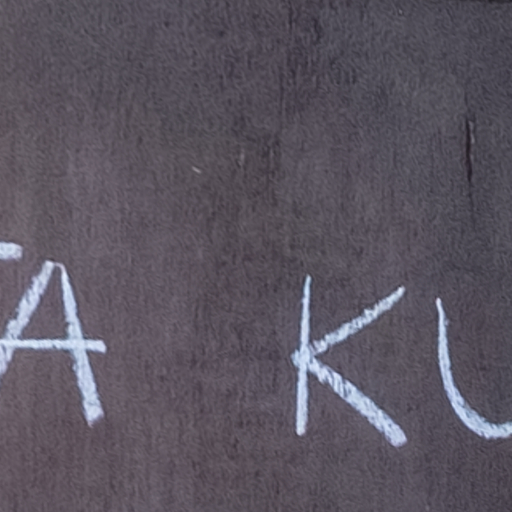 A KU